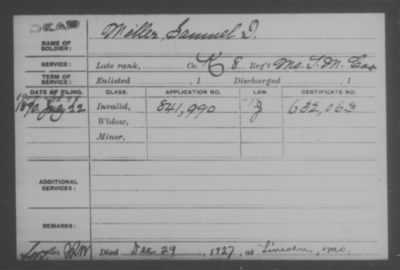 DEAD
Miller, Samuel D.
NAME OF SOLDIER:
SERVICE: Late rank, Co. K 8 Reg't Mo. S.M. Cav
TERM OF SERVICE: Enlisted , 1 Discharged , 1
DATE OF FILING. CLASS. APPLICATION NO. LAW. CERTIFICATE NO.
1890, July 22 Invalid, 841,990 632,063
Widow,
Minor,
ADDITIONAL SERVICES:
REMARKS:
Died Dec 29, 1927, at Lincoln, Mo.